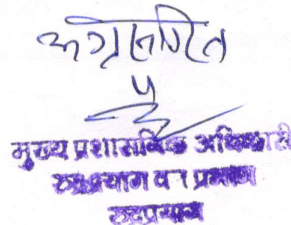 अग्रसारित
मुख्य प्रशासनिक अधिकारी
रुद्रप्रयाग वन प्रभाग
रुद्रप्रयाग